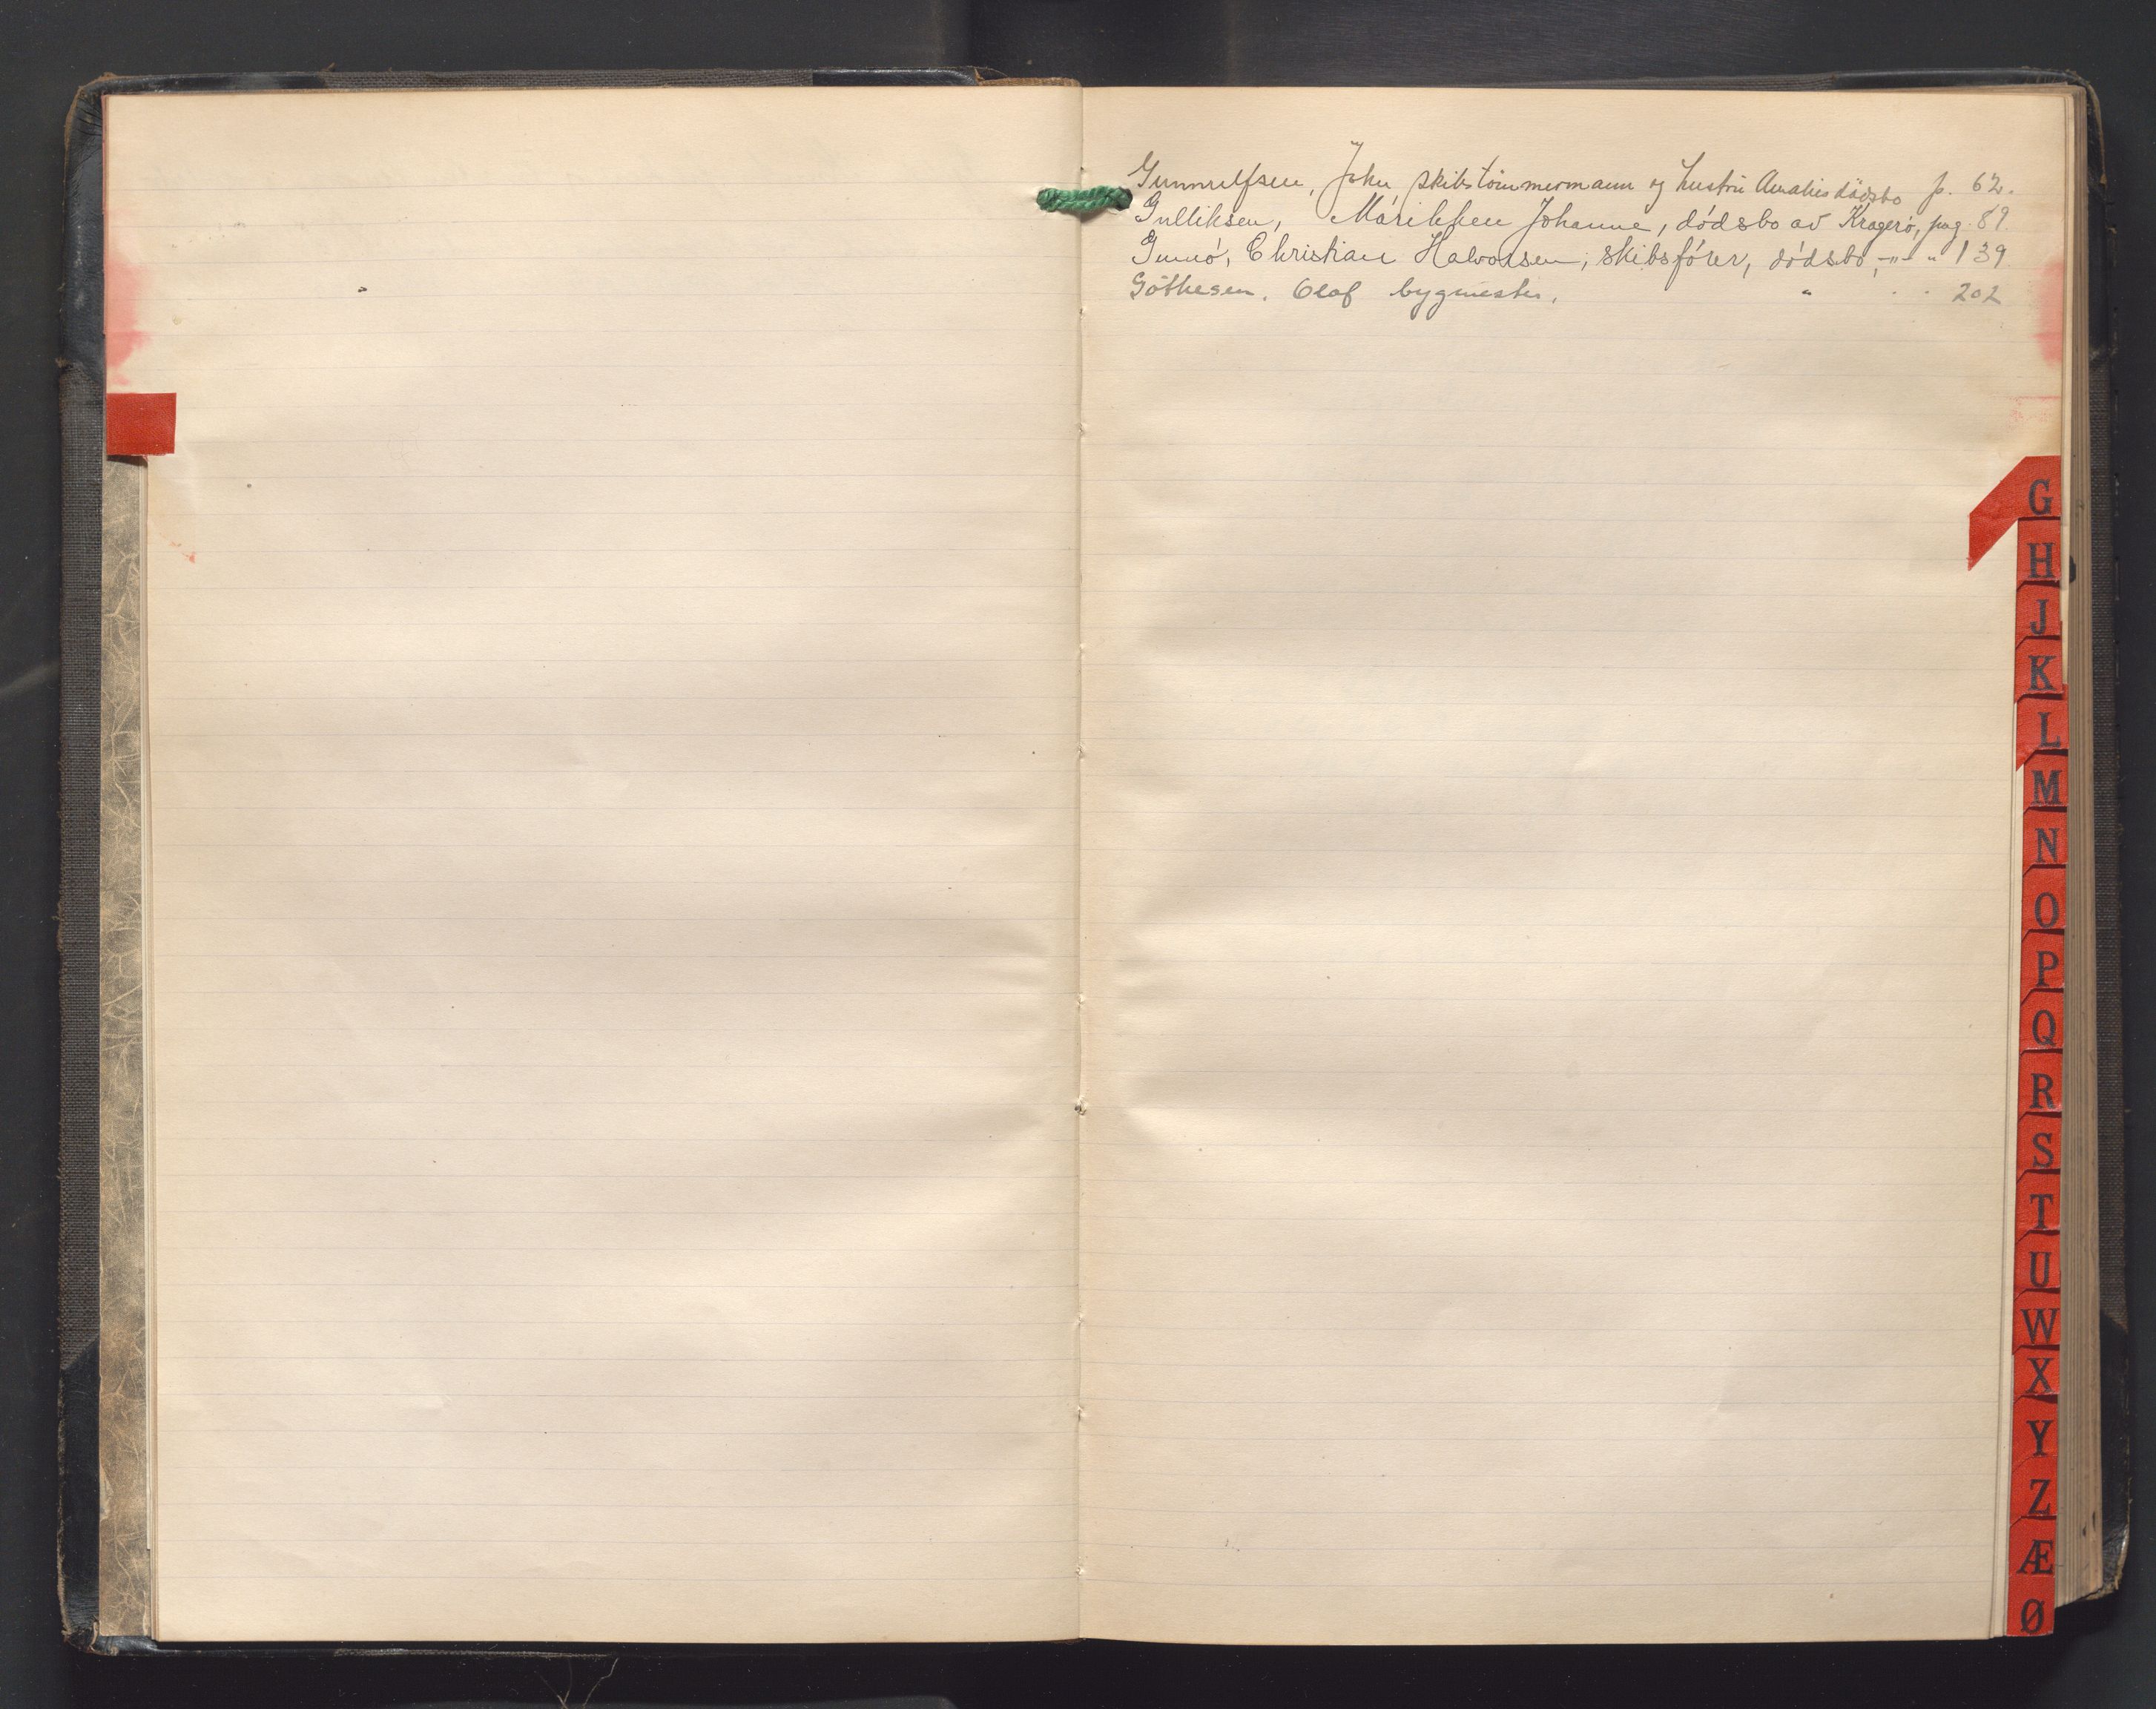 Gunnulfsen, John skibstömmermann og hustru Amalies dödsbo p. 62.
Gulliksen, Marikken Johanne, dódsbo av Kragerö, pag. 89.
Gunnó, Christian Halvorsen, skibsfórer, dódsbo, -"- " 139
Göthesen. Olaf bygmester, " " 202
G
H
J
K
L
M
N
O
P
Q
R
S
T
U
W
X
Y
Z
Æ
Ø